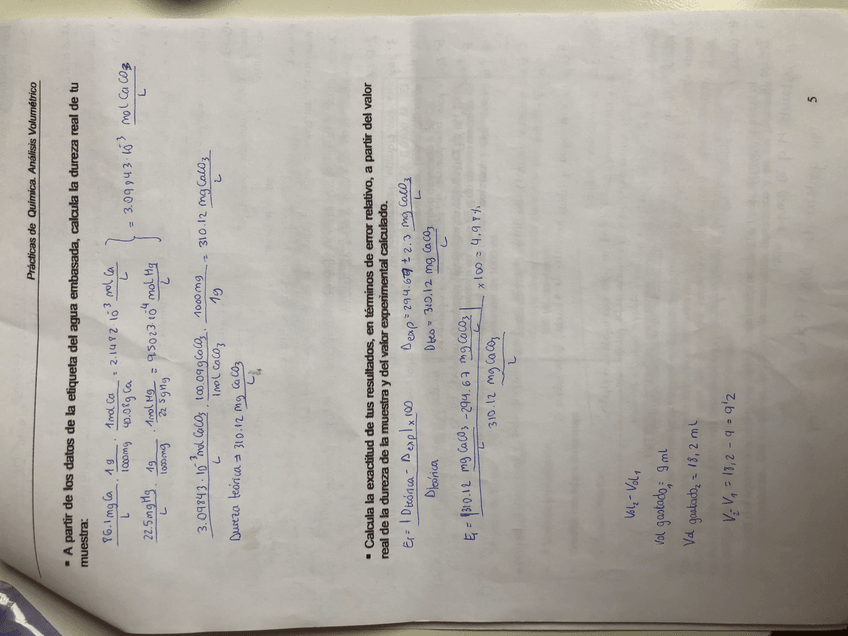 Prácticas de Química. Análisis Volumétrico
▪ A partir de los datos de la etiqueta del agua embasada, calcula la dureza real de tu
muestra:
86.1 mg Ca / L · 1g / 1000mg · 1mol Ca / 40.08g Ca = 2.1482·10⁻³ mol Ca / L
22.5 mg Mg / L · 1g / 1000mg · 1mol Mg / g Mg = 9.5023·10⁻⁴ mol Mg / L } = 3.09843·10⁻³ mol CaCO3 / L
3.09843·10⁻³ mol CaCO3 / L · 100.09g CaCO3 / 1mol CaCO3 · 1000mg / 1g = 310.12 mg CaCO3 / L
Dureza teórica ⇒ 310.12 mg CaCO3 / L
▪ Calcula la exactitud de tus resultados, en términos de error relativo, a partir del valor
real de la dureza de la muestra y del valor experimental calculado.
Er = |Dteórica - Dexp| x 100 / Dteórica
Dexp = 294.67 ± 2.3 mg CaCO3 / L
Dteo = 310.12 mg CaCO3 / L
Er = |310.12 mg CaCO3 / L - 294.67 mg CaCO3 / L| / 310.12 mg CaCO3 / L x 100 = 4.98%
Vol2 - Vol1
Vol gastado1 = 9 ml
Vol gastado2 = 18,2 ml
V2 - V1 = 18,2 - 9 = 9'2
5